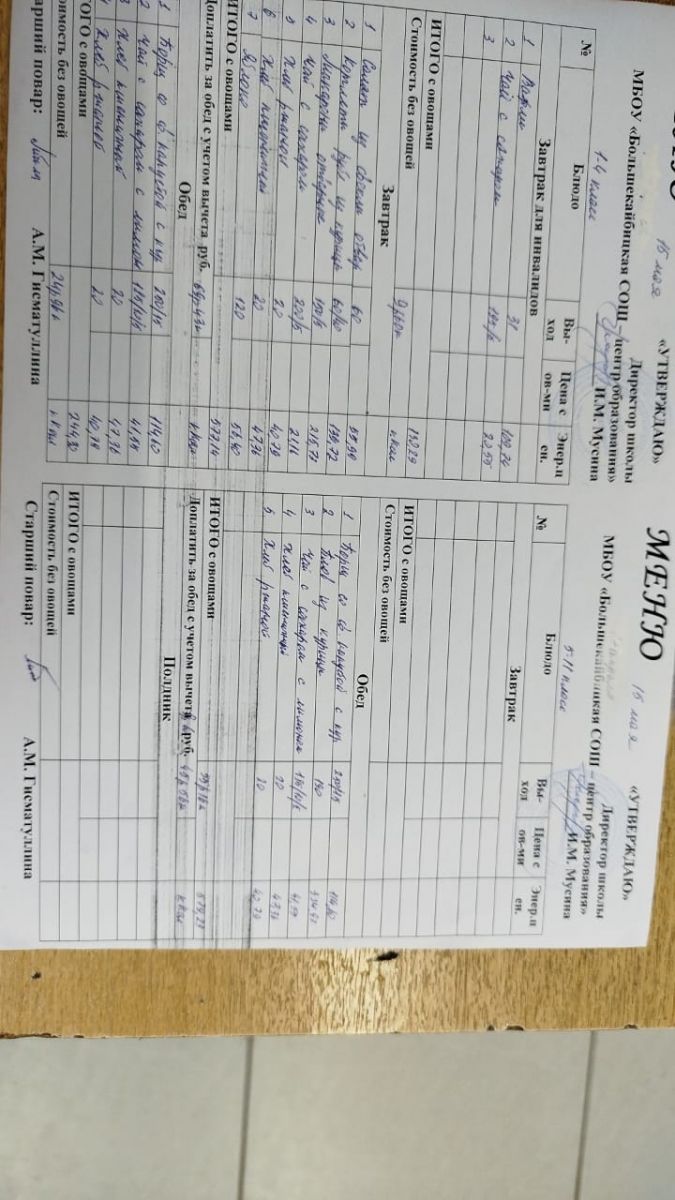 МЕНЮ
15 мая
«УТВЕРЖДАЮ»
Директор школы
МБОУ «Большекайбицкая СОШ – центр образования»
И.М. Мусина
1-4 класс
№ Блюдо Вы-ход Цена с ов-ми Энер.ц ен.
Завтрак для инвалидов
1 Вафли 31 109,74
2 Чай с сахаром
3
ИТОГО с овощами
Стоимость без овощей ккал
Завтрак
1 Салат из свеклы отвар 60 55,99
2 Котлета руб из курицы
3 Макароны отварные 150/5 215,71
4 Чай с сахаром 200/5 21,16
5 Хлеб ржаной 20 40,79
6 Хлеб пшеничный 20 47,36
7 Яблоко 120 56,40
ИТОГО с овощами 577,14
Доплатить за обед с учетом вычета руб. 69р 43к ккал
Обед
1 Борщ со св капустой с кур 250/15 114,60
2 Чай с сахаром с лимон 41,55
3 Хлеб пшеничный 20 47,36
4 Хлеб ржаной 20 40,79
ИТОГО с овощами 244,30
Стоимость без овощей 24р 96к ккал
Старший повар: А.М. Гисматуллина
МЕНЮ
15 мая
«УТВЕРЖДАЮ»
Директор школы
МБОУ «Большекайбицкая СОШ – центр образования»
И.М. Мусина
5-11 класс
№ Блюдо Вы-ход Цена с ов-ми Энер.ц ен.
Завтрак
ИТОГО с овощами
Стоимость без овощей
Обед
1 Борщ со св. капустой с кур 250/15 114,60
2 Плов из курицы
3 Чай с сахаром с лимоном
4 Хлеб пшеничный 20
5 Хлеб ржаной 20 40,79
ИТОГО с овощами
Доплатить за обед с учетом вычета руб. ккал
Полдник
ИТОГО с овощами
Стоимость без овощей
Старший повар: А.М. Гисматуллина